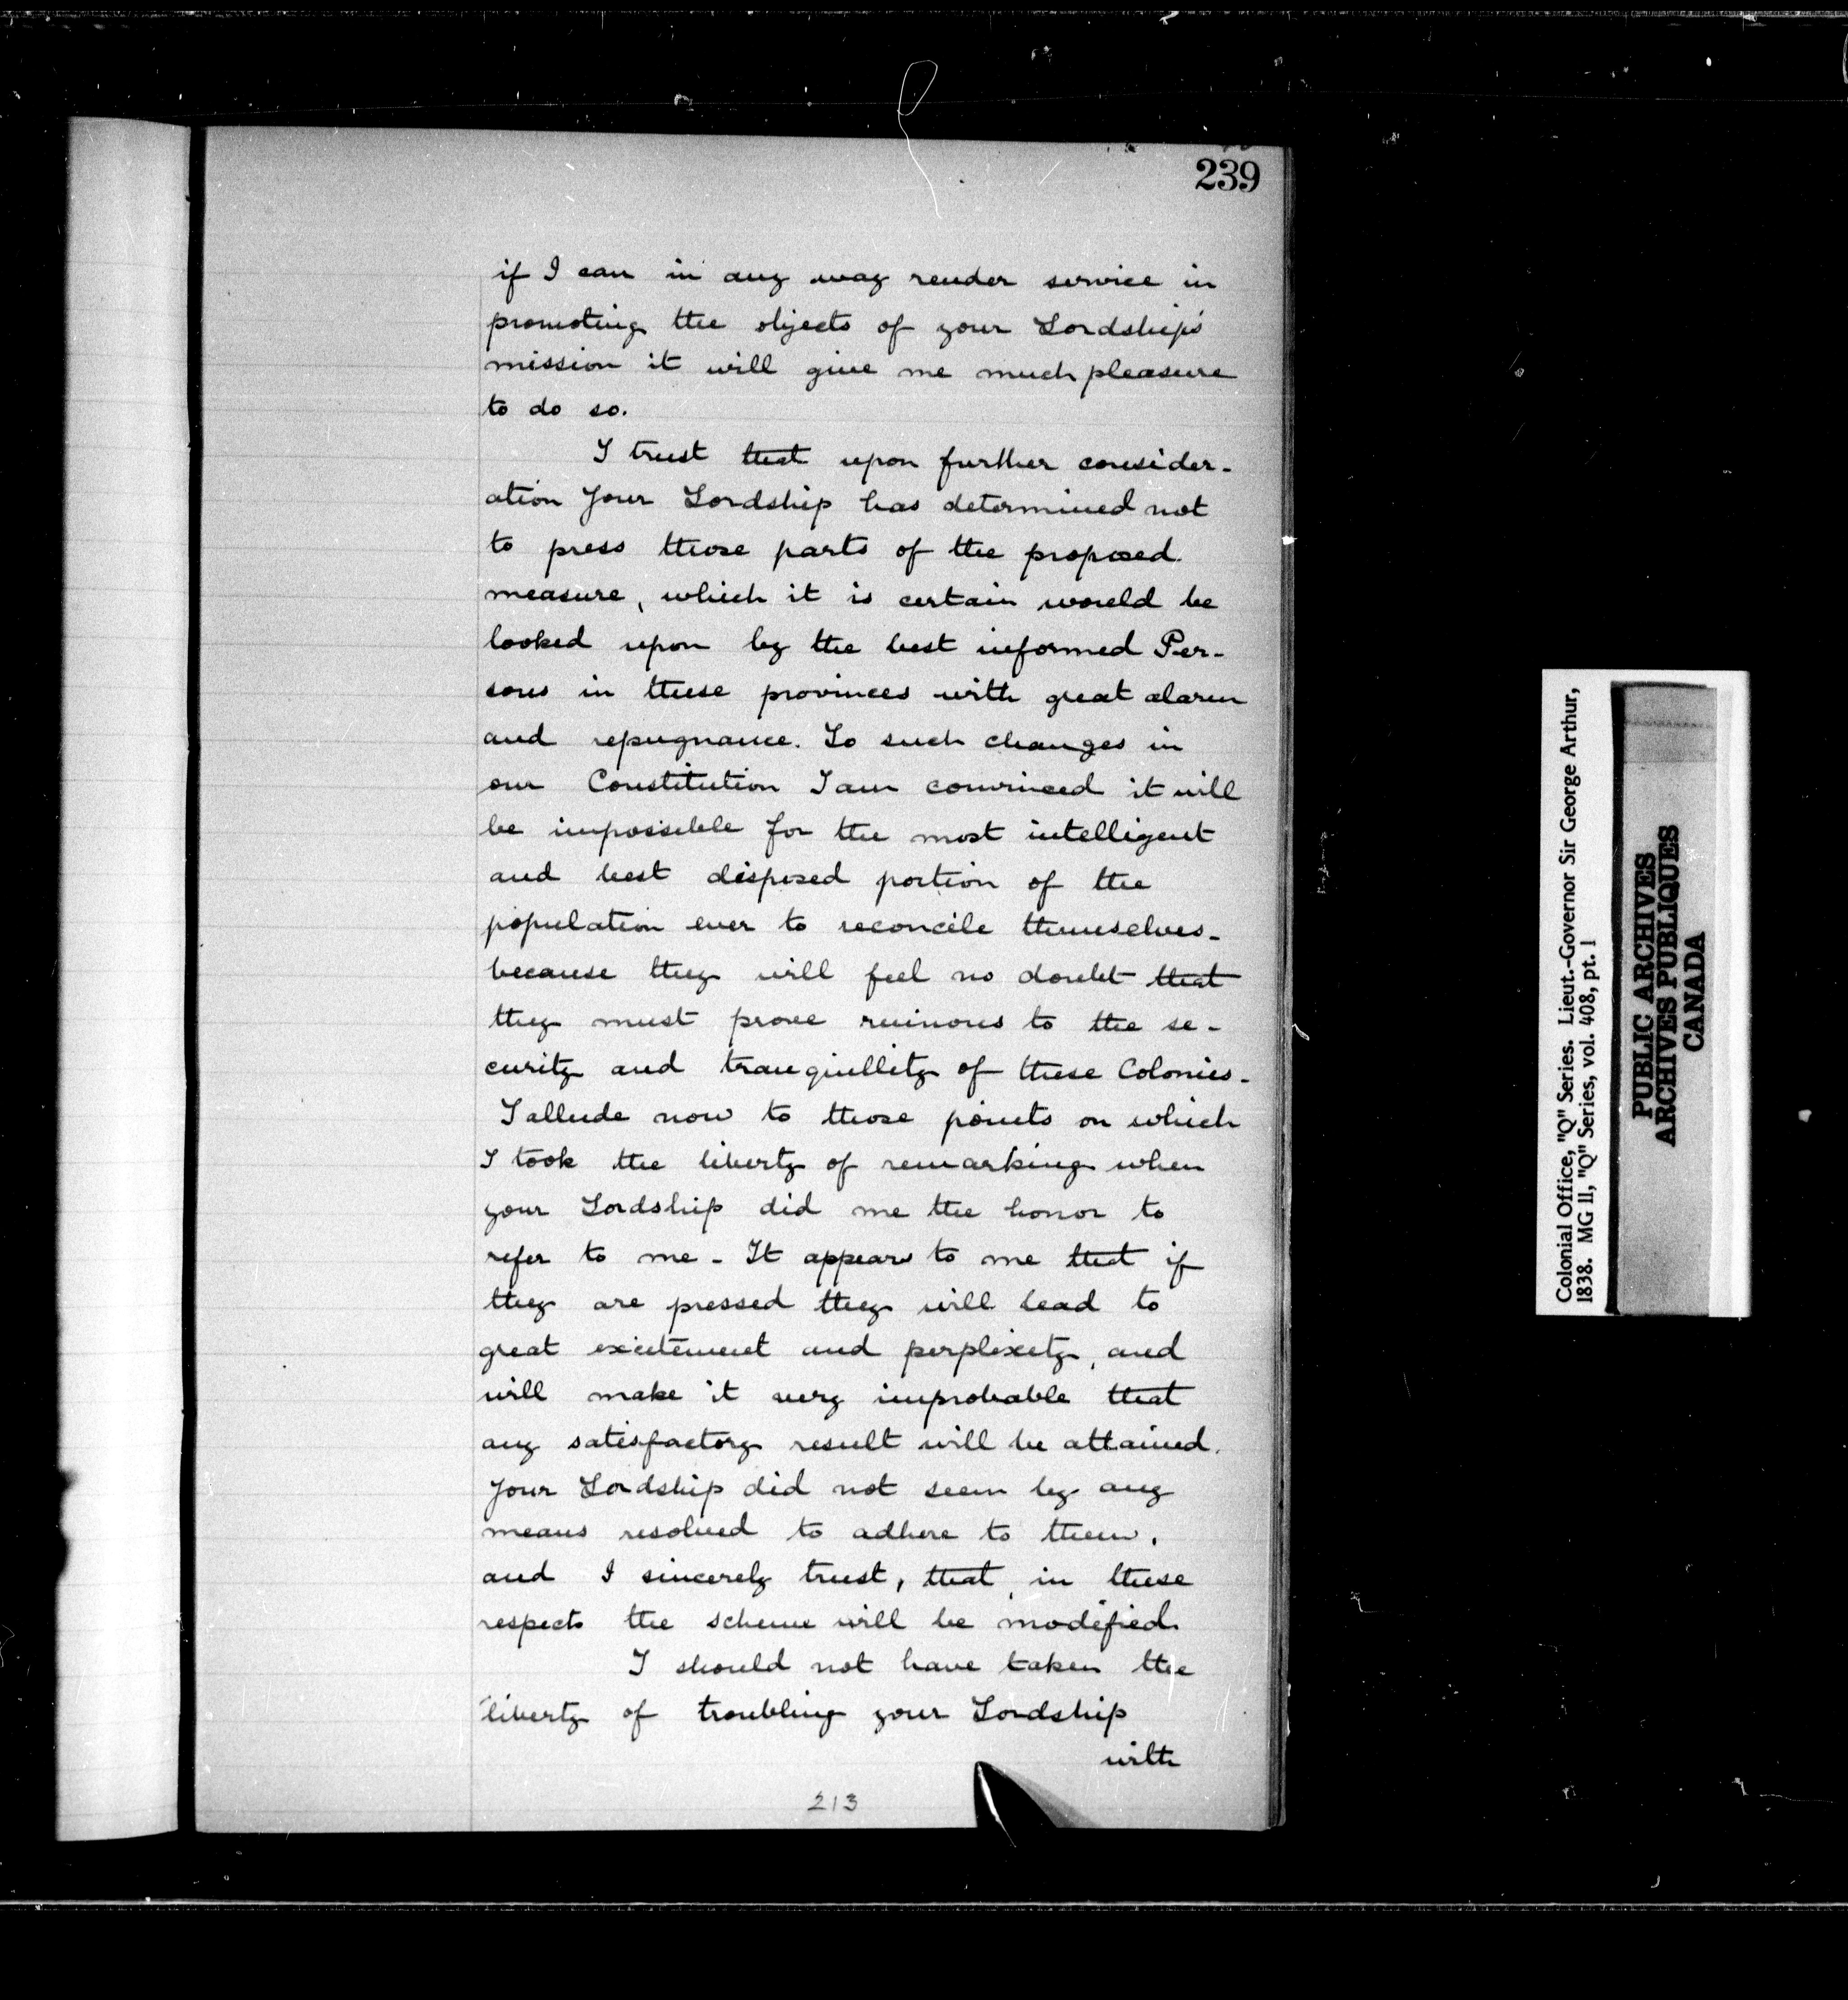 239
if I can in any way render service in
promoting the objects of your Lordship's
mission it will give me much pleasure
to do so.
I trust that upon further consider-
ation Your Lordship has determined not
to press those parts of the proposed
measure, which it is certain would be
looked upon by the best informed Per-
sons in these provinces with great alarm
and repugnance. To such changes in
our Constitution I am convinced it will
be impossible for the most intelligent
and best disposed portion of the
population ever to reconcile themselves-
because they will feel no doubt that
they must prove ruinous to the se-
curity and tranquillity of these Colonies-
I allude now to those points on which
I took the liberty of remarking when
your Lordship did me the honor to
refer to me - It appears to me that if
they are pressed they will lead to
great excitement and perplexity, and
will make it very improbable that
any satisfactory result will be attained.
Your Lordship did not seem by any
means resolved to adhere to them,
and I sincerely trust, that, in these
respects the scheme will be modified.
I should not have taken the
liberty of troubling your Lordship
with
213
Colonial Office, "Q" Series. Lieut.-Governor Sir George Arthur,
1838. MG 11, "Q" Series, vol. 408, pt. 1
PUBLIC ARCHIVES
ARCHIVES PUBLIQUES
CANADA